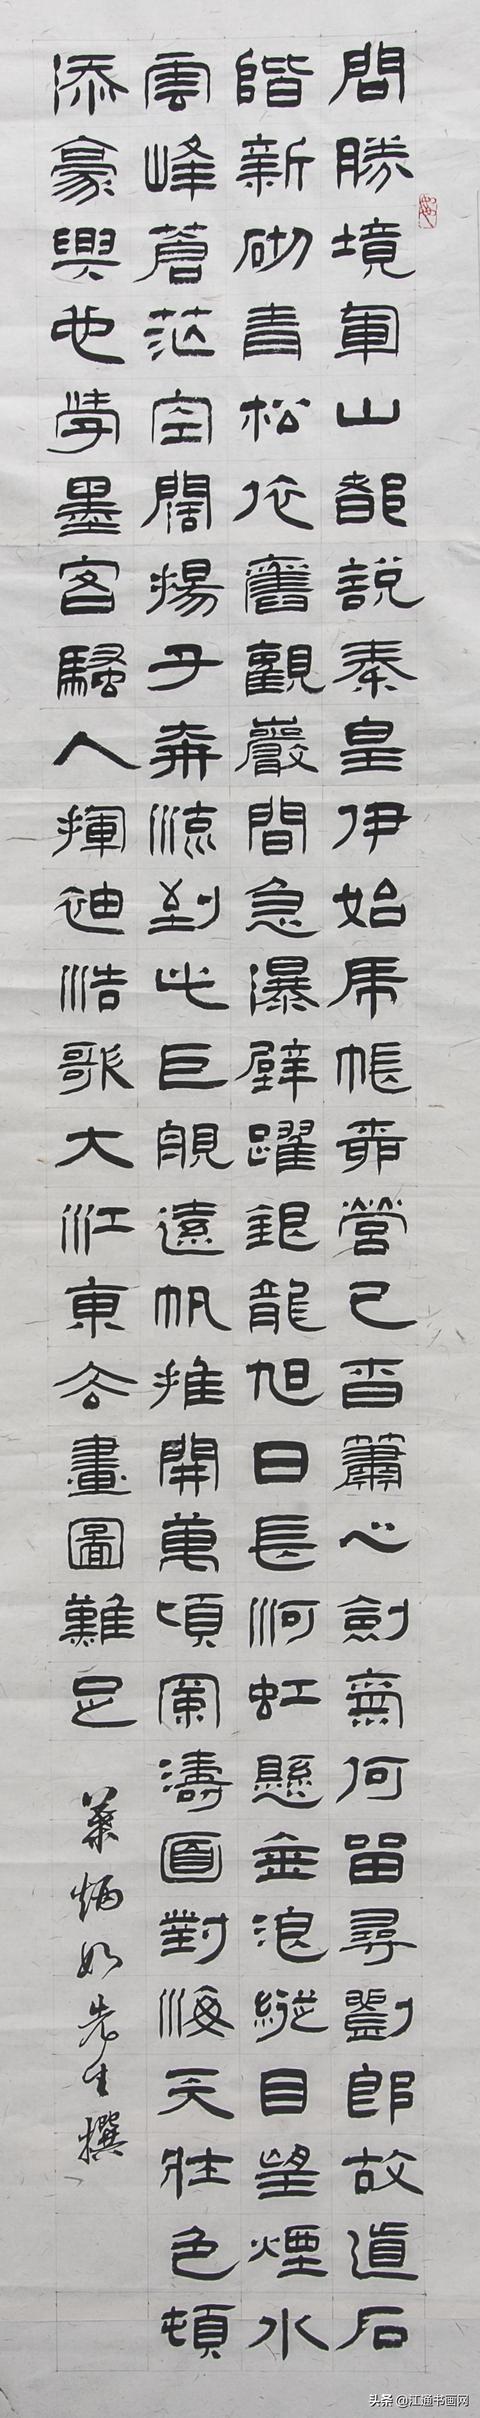 問勝境軍山都說秦皇伊始虎帳營已杳簫心劍無何留尋劉郎故道石
階新砌青松依舊觀巖間急瀑壁躍銀龍旭日長河虹懸金浪縱目望煙水
雲峰蒼茫空闊揚子奔流到此巨舰遠帆推開萬頃闌濤面對海天壯色頓
添豪興也學墨客騷人揮迪浩歌大江東去畫圖難足
葉炳如先生撰
头条 @江通书画网